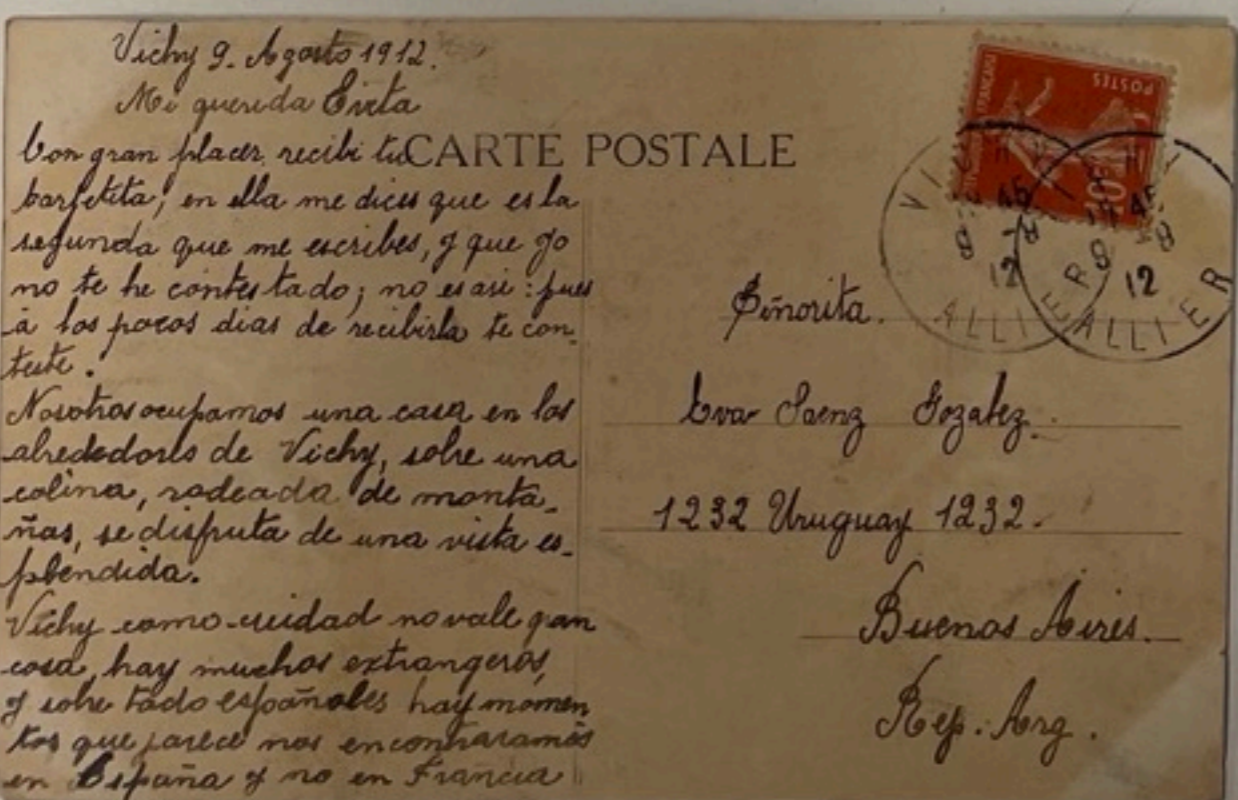 Vichy 9. Agosto 1912.
Mi querida Evita
Con gran placer, recibi tu
tarjetita; en ella me dices que es la
segunda que me escribes, y que yo
no te he contestado; no es asi: pues
á los pocos dias de recibirla te con-
teste.
Nosotros ocupamos una casa en los
alrededores de Vichy, sobre una
colina, rodeada de monta-
ñas, se disfruta de una vista es-
plendida.
Vichy como cuidad no vale gran
cosa, hay muchos extrangeros,
y sobre todo españoles hay momen
tos que parece nos encontraramos
en España y no en Francia
CARTE POSTALE
POSTES
10
VICHY
9 -8
12
ALLIER
VICHY
45
9 8
12
ALLIER
Señorita.
Eva Saenz Gozalez.
1232 Uruguay 1232.
Buenos Aires.
Rep. Arg.